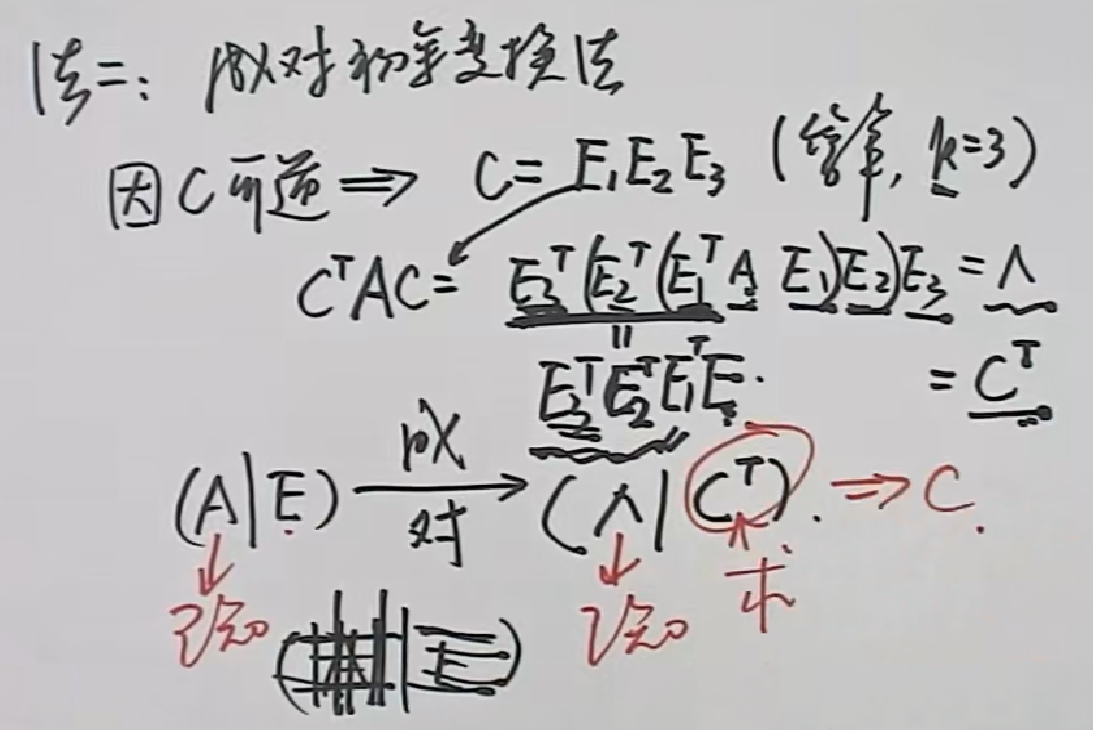 法二: 成对初等变换法
因C可逆 ⇒ C=E₁E₂E₃ (简单, k=3)
CᵀAC= E₃ᵀ(E₂ᵀ(E₁ᵀAE₁)E₂)E₃ = Λ
E₃ᵀE₂ᵀE₁ᵀE. = Cᵀ
(A|E) 成对→ (Λ|Cᵀ). ⇒ C.
已知 已知 求
(A|E)